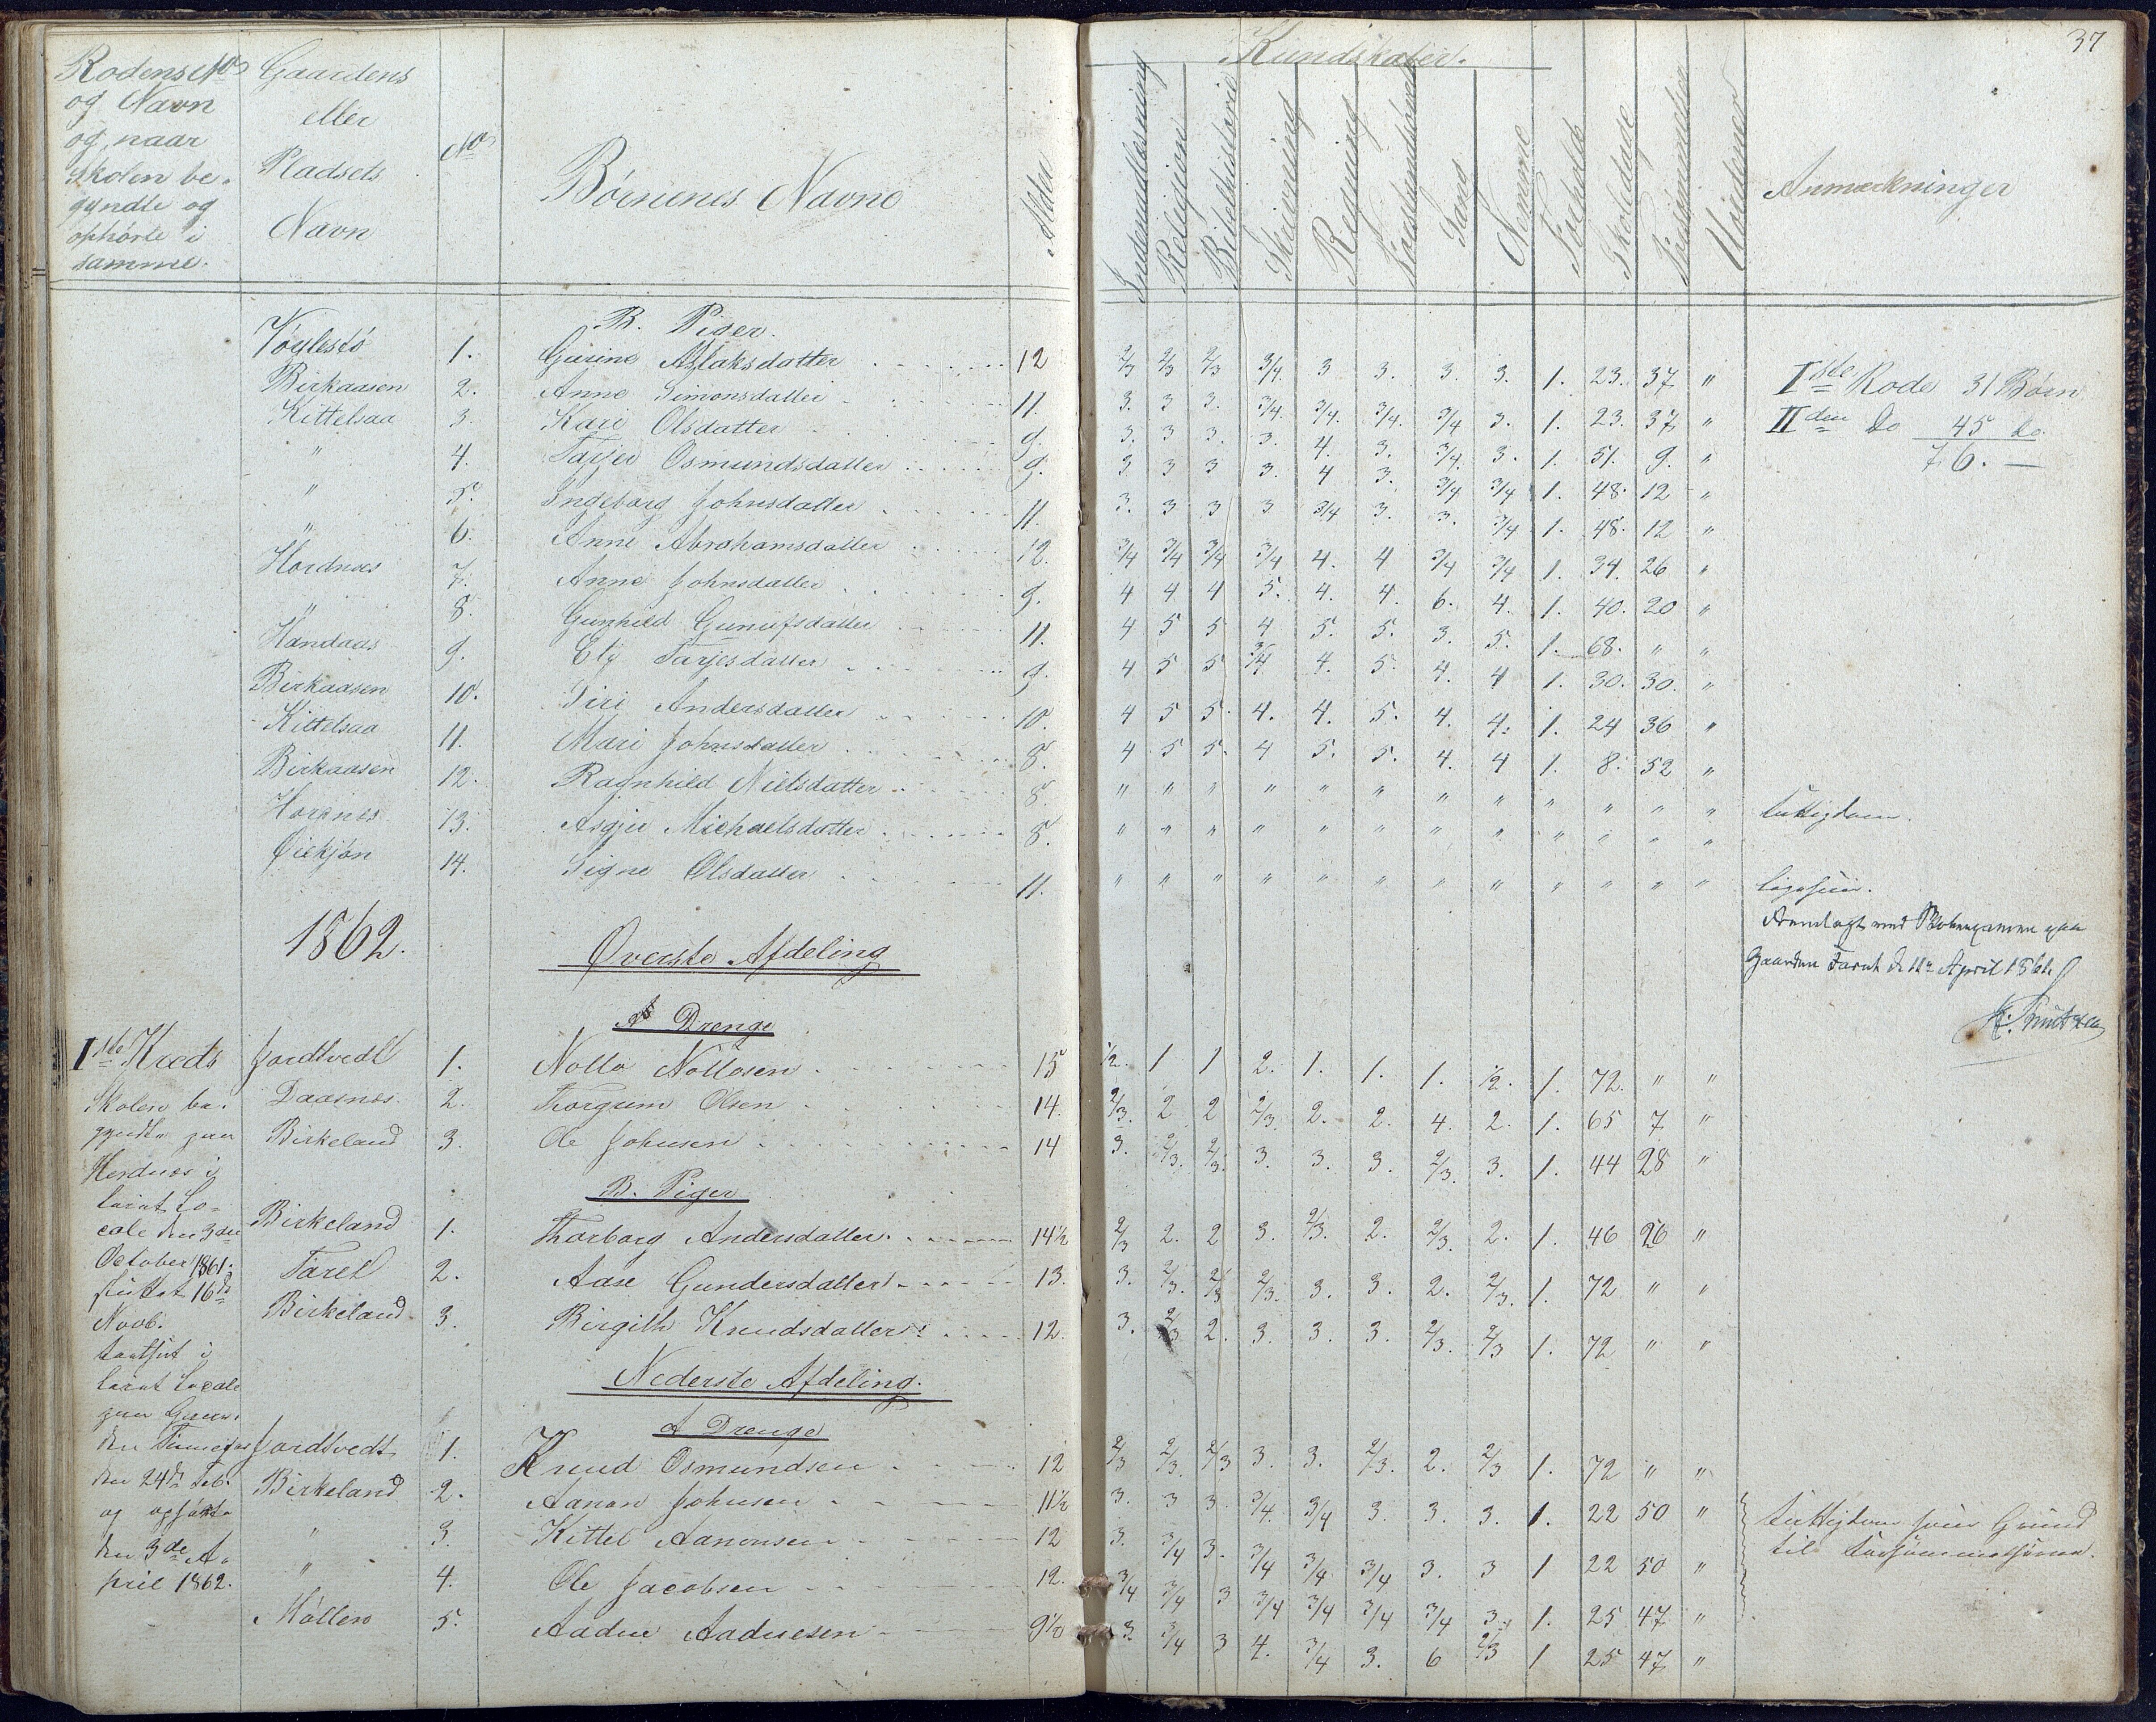 37
Rodens No
og Navn
og naar
Skolen be-
gyndte og
ophørte i
samme.
Gaardens
eller
Pladsets
Navn
No
Børnenes Navne
Alder
Kundskaber.
Indenadlæsning
Religion
Bibelhistorie
Skrivning
Regning
Sang
Nemme
Forhold
Skoledage
Forsømmelser
Anmærkninger
B. Piger.
Vøylestø 1. Gusine Aslaksdatter 12 2/3 2/3 2/3 3/4. 3 3. 3. 3. 1. 23. 37. "
Birkaasen 2. Anne Simonsdatter 11. 3. 3 3. 3/4. 3/4. 3/4. 3/4 3. 1. 23. 37. "
Kittelsaa 3. Kari Olsdatter 9. 3. 3 3. 3. 4. 3. 3/4. 3. 1. 51. 9. "
" 4. Tarjer Osmundsdatter 9. 3 3 3 3. 4 3. 3/4 3/4 1. 48. 12 "
" 5. Ingeborg Johnsdatter 11. 3. 3 3 3 3/4 3. 3. 3/4 1. 48. 12 "
" 6. Anne Abrahamsdatter 12. 3/4 3/4 3/4 3/4 4. 4 3/4 3/4 1. 34. 26 "
Hordnes 7. Anne Johnsdatter 9. 4 4 4 5. 4. 4. 6. 4. 1. 40. 20 "
" 8. Gunhild Gunufsdatter 11. 4 5 5 4 5. 5. 3. 5. 1. 68. " "
Handaas 9. Ely Tarjesdatter 9. 4 5 5 3/4 4. 5. 4. 4 1. 30. 30. "
Birkaasen 10. Siri Andersdatter 10. 4 5 5. 4. 4. 5. 4. 4. 1. 24 36 "
Kittelsaa 11. Mari Johnsdatter 8. 4 5 5. 4 5. 5. 4. 4 1. 8. 52 "
Birkaasen 12. Ragnhild Nielsdatter 8. " " " " " " " " " " " " Fattigdom.
Hornes 13. Asgjer Michaelsdatter 8. " " " " " " " " " " " "
Øiekjøn 14. Signe Olsdatter 11. " " " " " " " " " " " "
Iste Rode 31 Børn
IIden do 45 do.
76. —
Gaarden Faret d 11te April 1861
1862.
Øverste Afdeling
A Drenge
Iste Kreds
Skolen be-
gyndte paa
Hordnes i
leiet Lo-
cale den 3die
October 1861.
fluttet 16de
Novb.
fortsat i
leiet Locale
paa Gaar-
den
den 24de Feb.
og ophørte
den 3de A-
pril 1862.
Jordtvedt 1. Nollo Nollosen 15 1/2. 1 1 2. 1. 1. 1. 1/2. 1. 72. " "
Daasnes 2. Thorgrim Olsen 14. 2/3. 2 2 2/3. 2. 2. 4. 2. 1. 65 7 "
Birkeland 3. Ole Johnsen 14 3. 2/3. 2/3. 3. 3. 3. 2/3. 3. 1. 44 28 "
B. Piger
Birkeland 1. Thorborg Andersdatter. 14½ 2/3 2. 2 3. 2/3. 2. 2/3. 2. 1. 46 26 "
Faret 2. Aase Gundersdatter 13. 3. 2/3. 2/3 2/3. 3. 3. 2. 2/3. 1. 72 " "
Birkeland 3. Birgith Knudsdatter 12. 3. 2/3 2. 3. 3. 3. 2/3. 2/3 1. 72 " "
Nederste Afdeling.
A Drenge
Jordtvedt 1. Knud Osmundsen 12 2/3 2/3. 2/3 3. 3. 2/3. 2. 2/3 1. 72 " "
Birkeland 2. Aanon Johnsen 11½ 3. 3 3. 3/4. 3/4 3. 3. 3. 1. 22 50 "
" 3. Kittel Aanonsen 12 3. 3/4 3. 3/4 3/4 3/4 3. 3 1 22 50 "
" 4. Ole Jacobsen 12. 3/4 3/4 3 3/4 3/4 3/4 3/4 3 1. 25 47. "
Møllen 5. Aadne Aadnesen 9½ 3 3/4 3 4. 3/4 3. 6 2/3 1 25 47 "
Fattigdom som Grund
til Forsømmelserne.